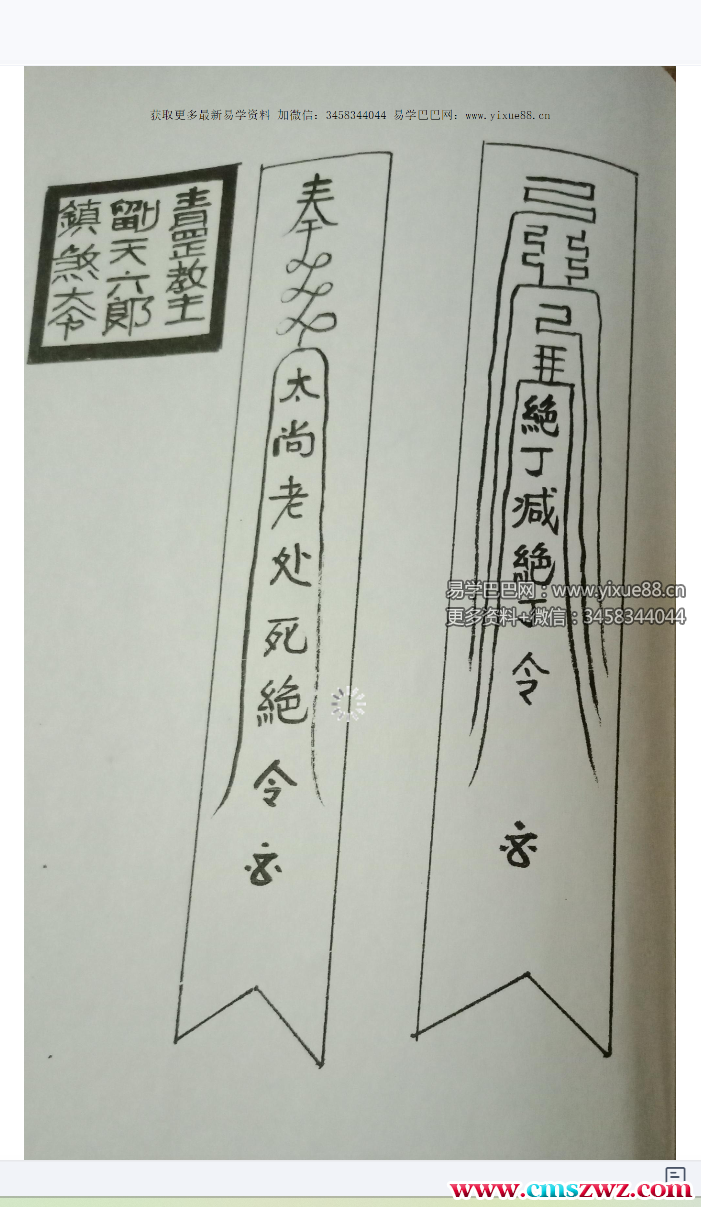 获取更多最新易学资料 加微信：3458344044 易学巴巴网：www.yixue88.cn
青罡教主
劉天六郎
鎮煞大令
奉
太尚老处死絕令
絕丁减絕丁令
易学巴巴网：www.yixue88.cn
更多资料+微信：3458344044
www.cmszwz.com